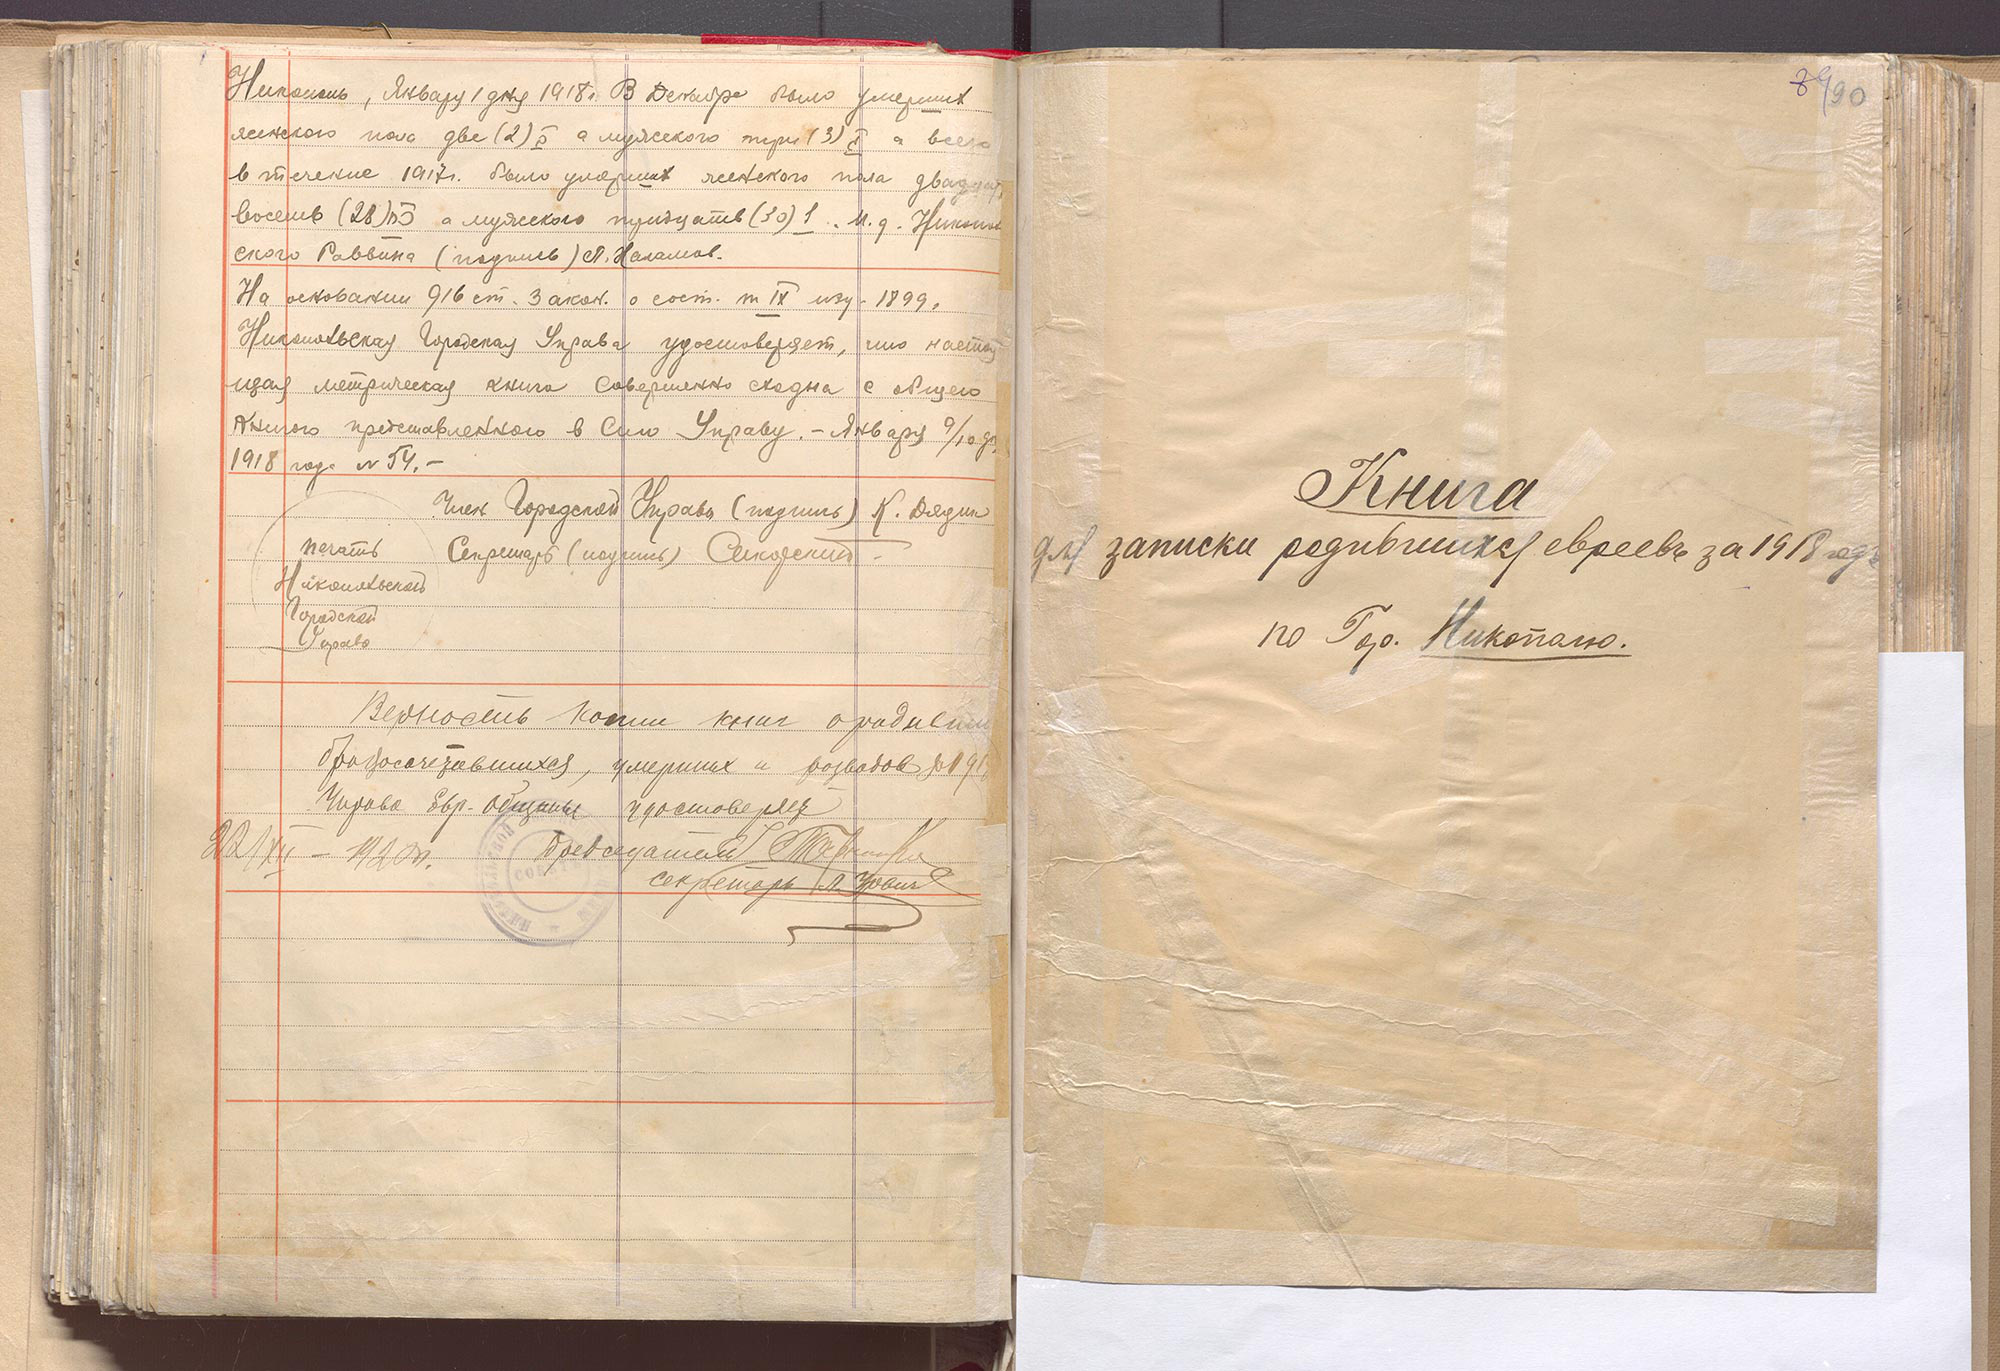 Никополь, Января 1 дня 1918г. В Декабре было умерших
женского пола две (2) а мужского три (3) а всего
в течение 1917г. было умерших женского пола двадцать
восемь (28) а мужского тридцать (30) И. д. Никополь
ского Раввина (подпись)
На основании 916 ст. Закон. о сост. т IX изд. 1899,
Никопольская Городская Управа удостоверяет, что настоя
щая метрическая книга совершенно сходна с общего
книгою представленного в Сию Управу. – Января 9/10 дн.
1918 года N 54. –
Член Городской Управы (подпись) К. Дядик
Секретарь (подпись)
печать
Никопольской
Городской
Управы
Верность копии книг о родивши
бракосочетавшихся, умерших и разводов за 191
Управа Евр. общины удостоверяет
22/XII – 1920г. Председатель
секретарь
8990
Книга
для записки родившихся евреевъ за 1918 годъ
по Гор. Никополю.